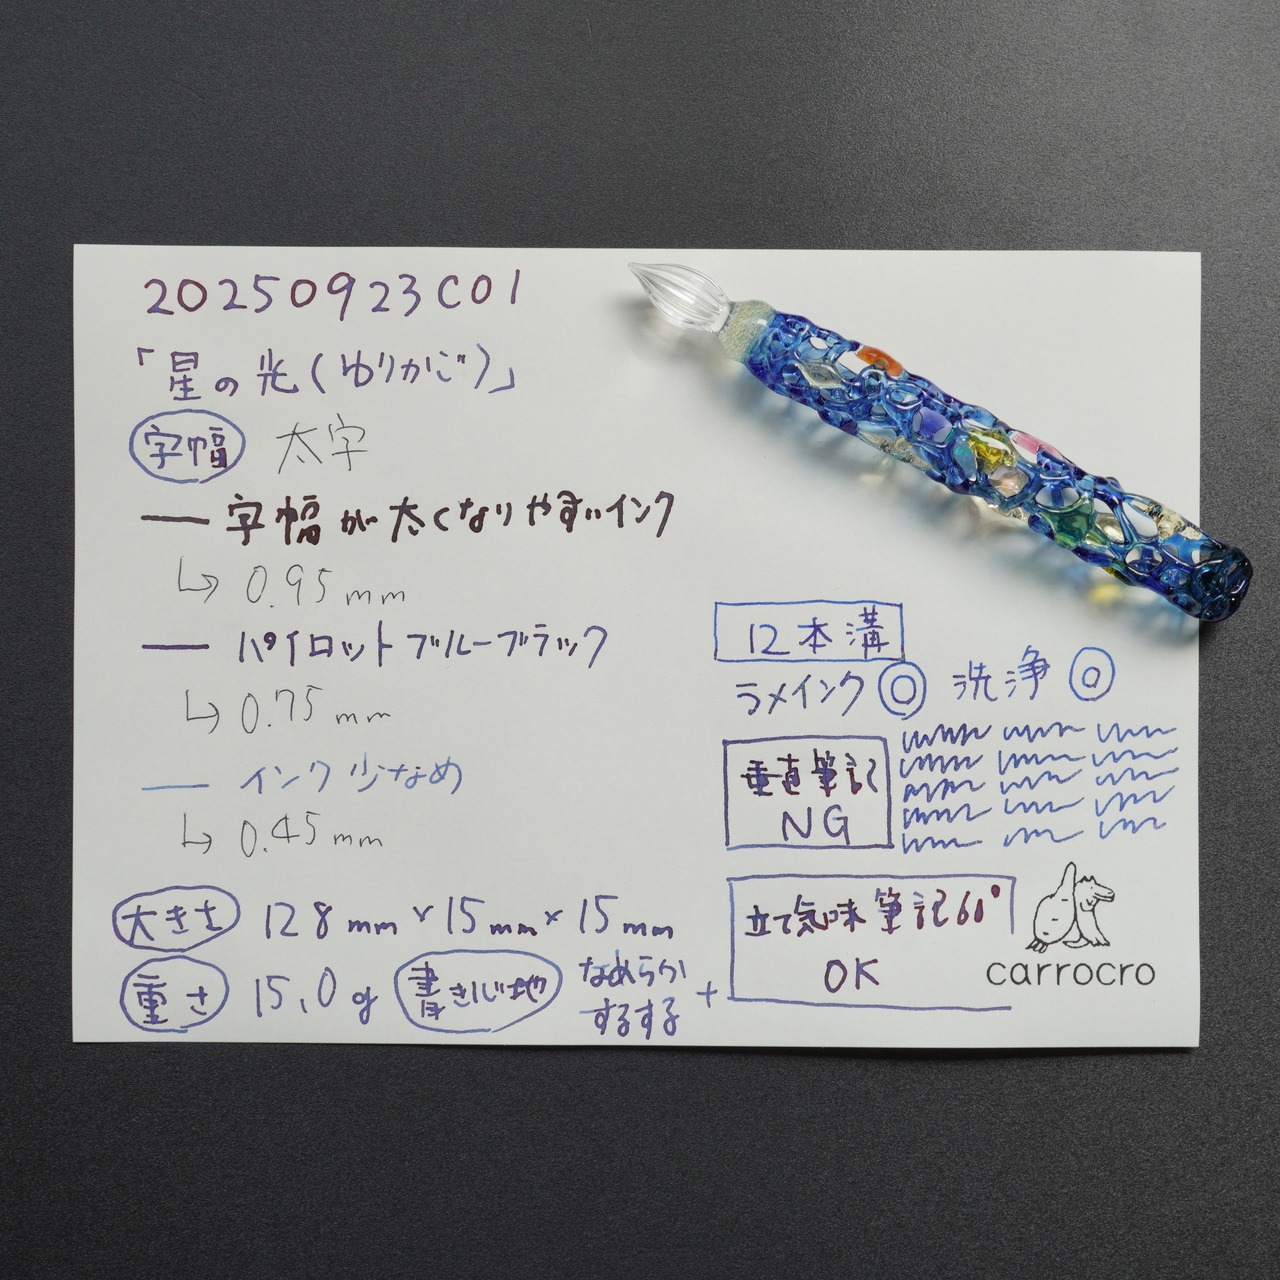 20250923C01
「星の光(ゆりかご)」
字幅 太字
字幅が太くなりやすいインク
0.95mm
パイロットブルーブラック
0.75mm
インク少なめ
0.45mm
大きさ 128mm×15mm×15mm
重さ 15.0g 書き心地 なめらか
するする +
12本溝
ラメインク◎ 洗浄◎
垂直筆記
NG
立て気味筆記60°
OK
carrocro